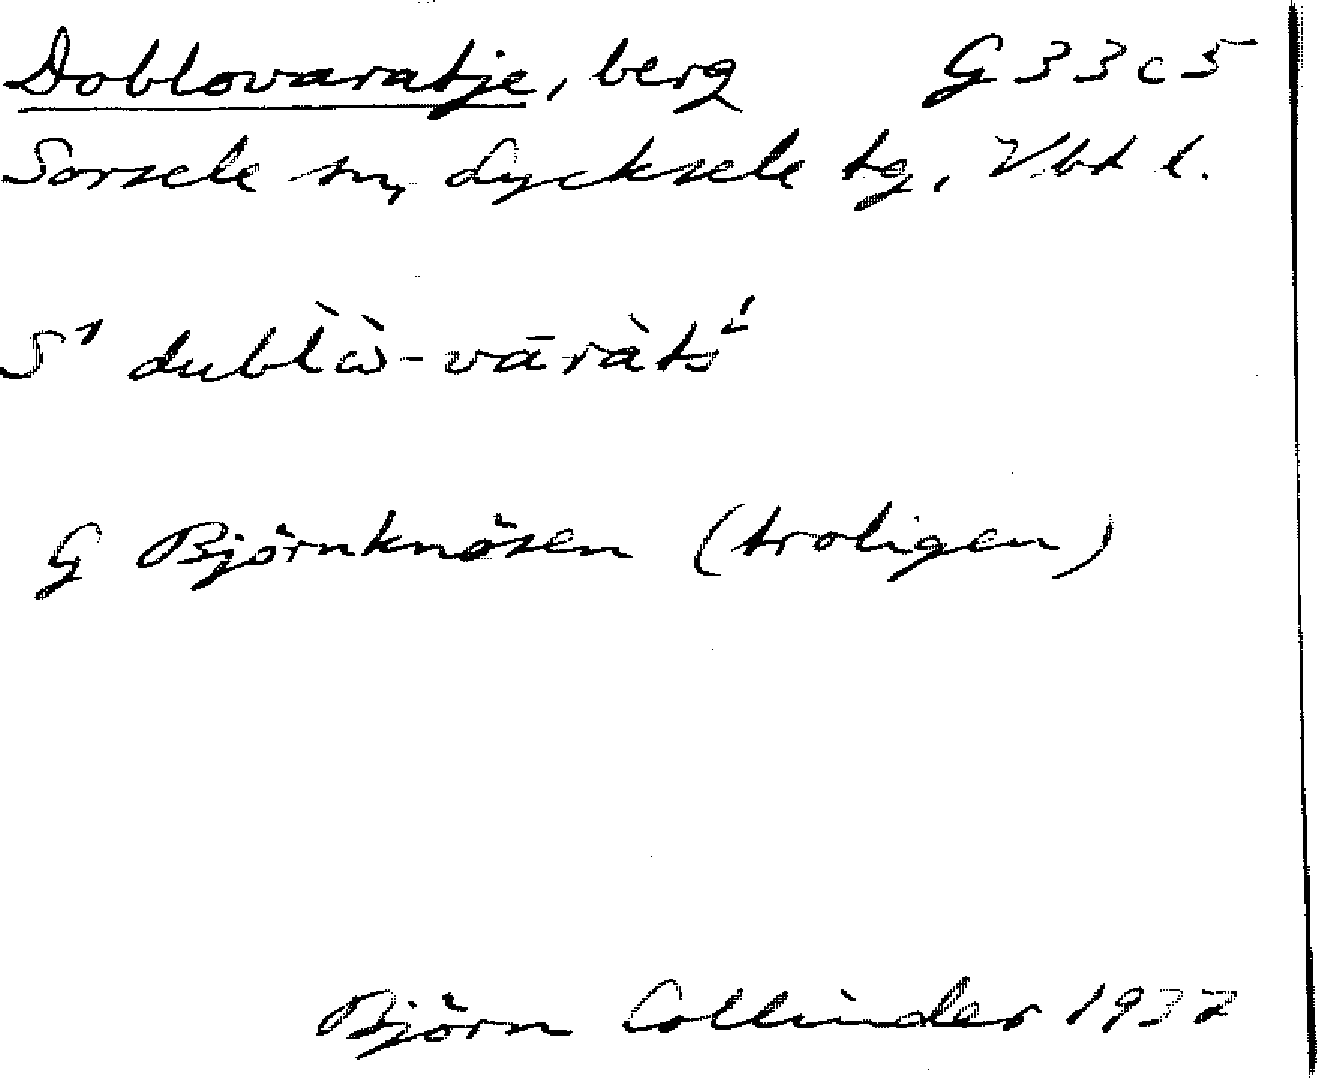 Doblovaratje, berg G 33 c 5
Sorsele sn, Lycksele tg, Vbt l.
G Björnknösen (troligen)
Björn Collinder 1937